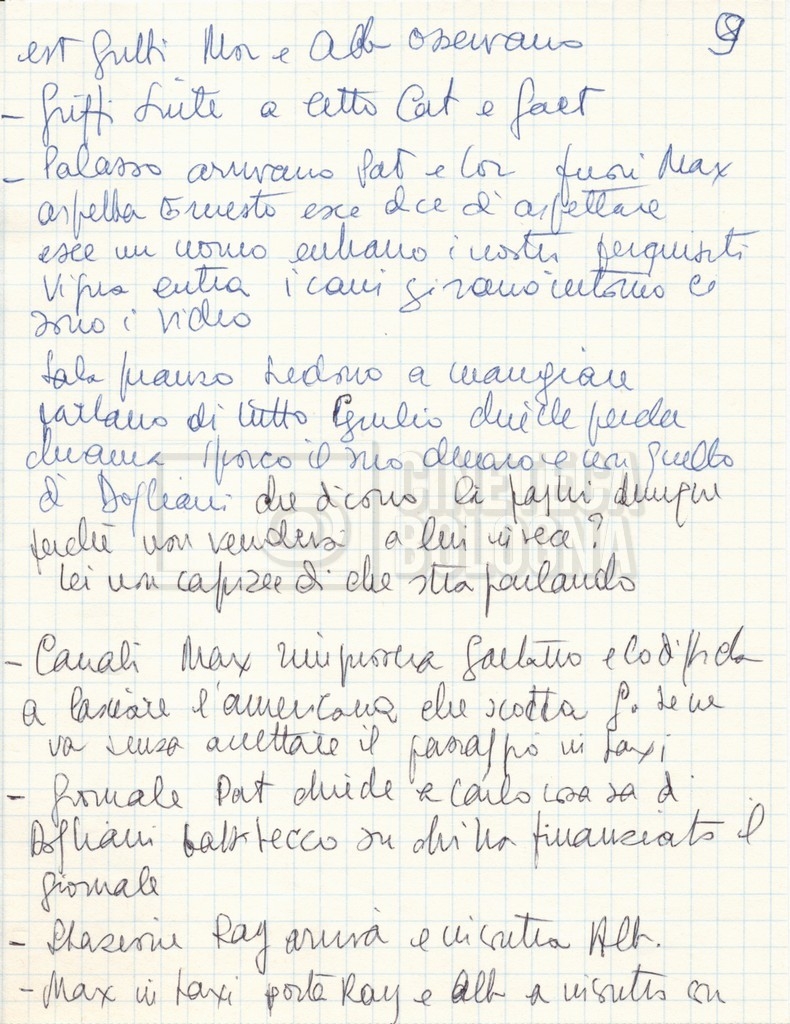 est Gritti Mor e Alb osservano 9
- Griffi Suite a letto Cat e Gaet
- Palasso arrivano Gat e Cor fuori Max
aspetta Ernesto esce dice di aspettare
esce un uomo entrano i nostri perquisiti
Vigna entra i cani girano intorno ci
sono i video
Sala pranzo siedono a mangiare
parlano di tutto Giulio chiede
sporco il suo denaro e non quello
di Dogliani che dicono la dunque
perché non vendersi a lui invece?
Lei non capisce di che sta parlando
- Canali Max rimprovera Gaetano e lo diffida
a lasciare l'americana che scotta G. se ne
va senza accettare il passaggio in taxi
- Giornale Pat chiede a Carlo cosa sa di
Dogliani batt becco su chi ha finanziato il
giornale
- Stazione Ray arriva e incontra Alb.
- Max in taxi porta Ray e Alb a incontro con
CINETECA
BOLOGNA